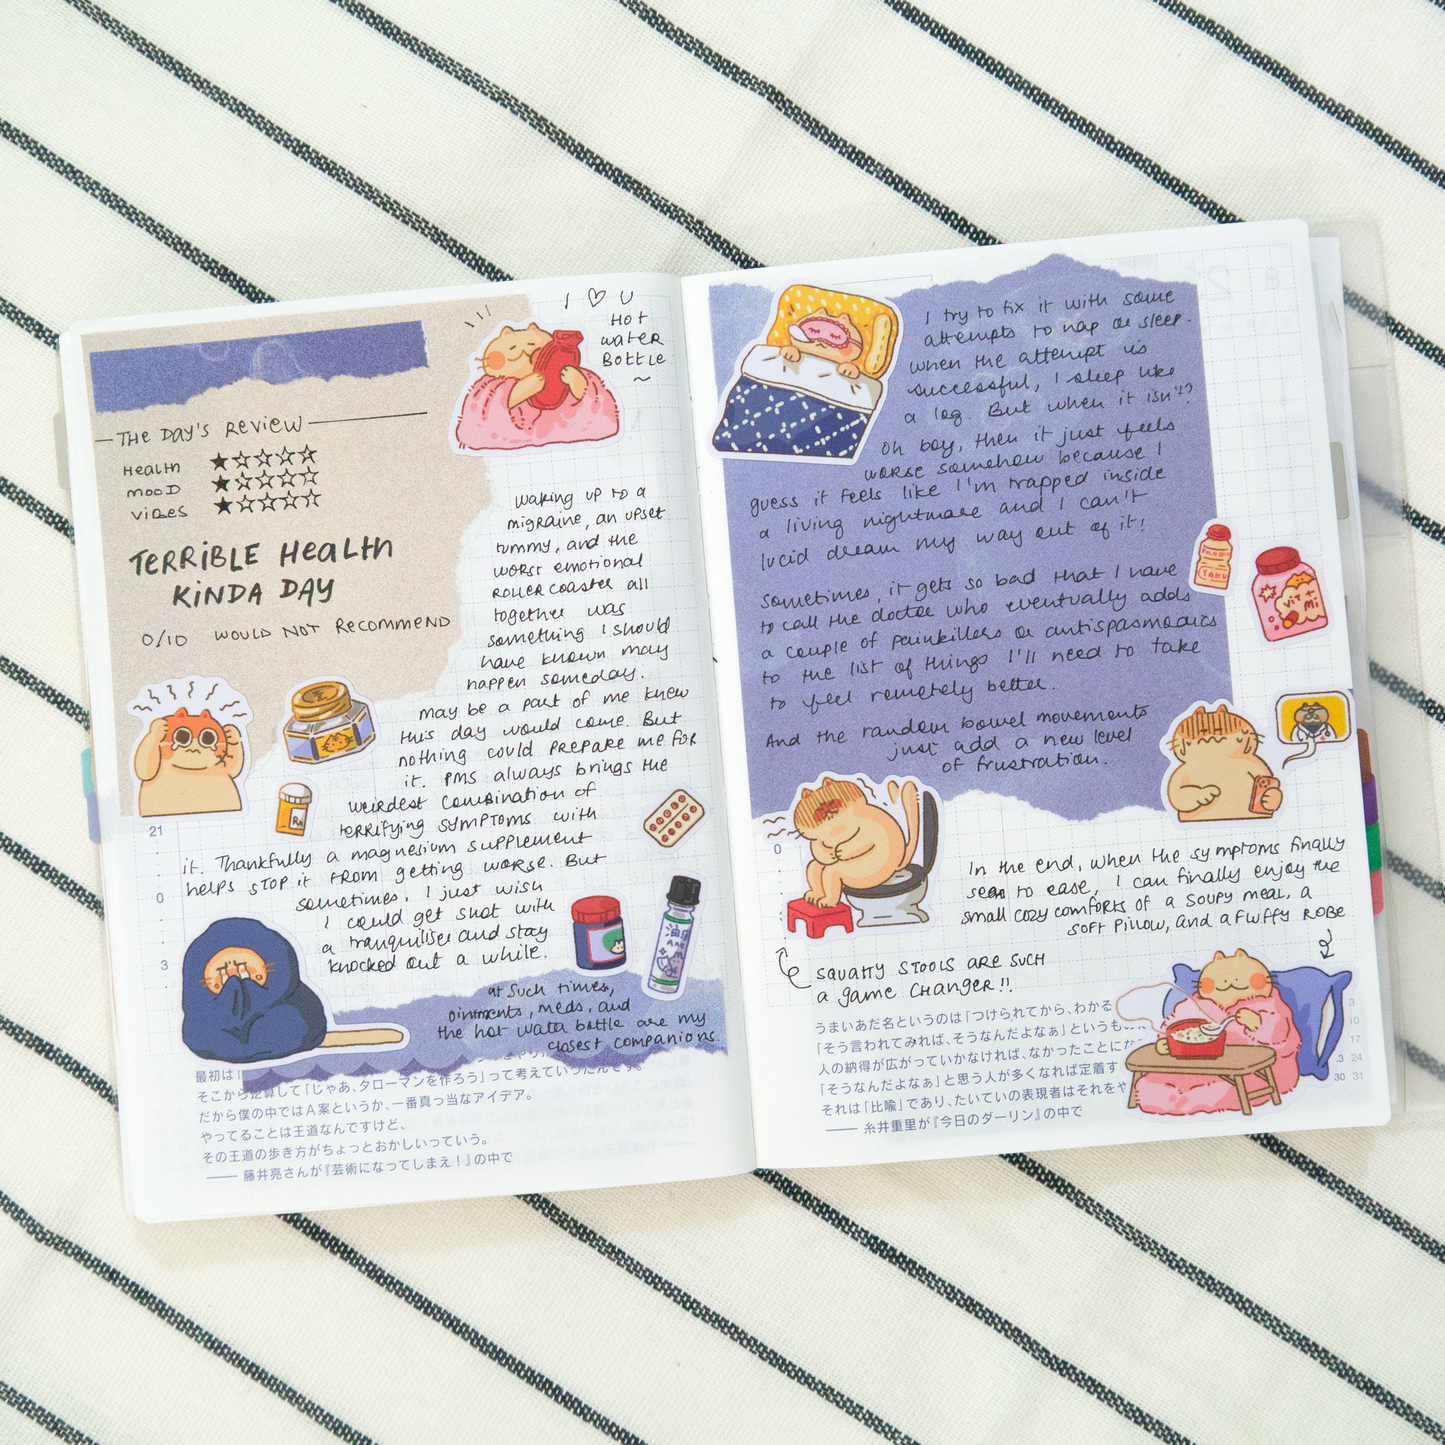 I ♡ U
HOT
WATER
BOTTLE
~
THE DAY'S REVIEW
HEALTH ★☆☆☆☆
MOOD ★☆☆☆☆
VIBES ★☆☆☆☆
TERRIBLE HEALTH
KINDA DAY
0/10 WOULD NOT RECOMMEND
Waking up to a
migraine, an upset
tummy, and the
worst emotional
ROLLERCOASTER all
together was
something I should
have known may
happen someday.
may be a part of me knew
this day would come. But
nothing could PREPARE me FOR
it. PMS always brings the
weirdest combination of
terrifying symptoms with
it. Thankfully a magnesium supplement
helps STOP it FROM getting worse. But
sometimes, I just wish
I could get shot with
a tranquiliser and stay
knocked out a while.
Rx
油
at such times,
ointments, meds, and
the hot water bottle are my
closest companions.
21
0
3
最初は「
そこから逆算して「じゃあ、タローマンを作ろう」って考えていったんです。
だから僕の中ではA案というか、一番真っ当なアイデア。
やってることは王道なんですけど、
その王道の歩き方がちょっとおかしいっていう。
—— 藤井亮さんが『芸術になってしまえ！』の中で
I try to fix it with some
attempts to nap or sleep.
when the attempt is
successful, I sleep like
a log. But when it isn't?
Oh boy, then it just feels
worse somehow because I
guess it feels like I'm trapped inside
a living nightmare and I can't
lucid dream my way out of it!
Sometimes, it gets so bad that I have
to call the doctor who eventually adds
a couple of painkillers or antispasmodics
to the list of things I'll need to take
to feel remotely better.
And the random bowel movements
just add a new level
of frustration.
TAKU
VIT+
Mi
0
In the end, when the symptoms finally
seem to ease, I can finally enjoy the
small cozy comforts of a soupy meal, a
soft pillow, and a fluffy ROBE
SQUATTY STOOLS ARE SUCH
a game CHANGER!!
うまいあだ名というのは「つけられてから、わかる
「そう言われてみれば、そうなんだよなぁ」というもの
人の納得が広がっていかなければ、なかったことにな
「そうなんだよなぁ」と思う人が多くなれば定着す
それは「比喩」であり、たいていの表現者はそれをや
—— 糸井重里が『今日のダーリン』の中で
3
10
17
23 24
30 31